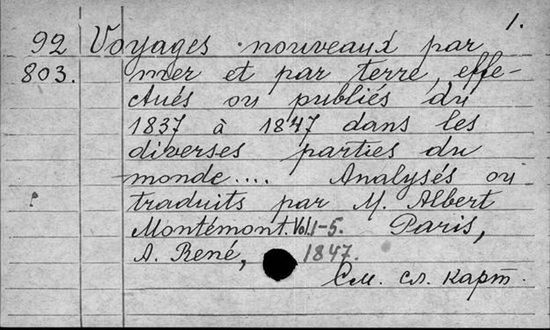 1.
92 Voyages nouveaux par
803. mer et par terre, effe-
ctués ou publiés du
1837 à 1847 dans les
diverses parties du
monde.... Analysés ou
traduits par M. Albert
Montémont. Vol. 1-5. Paris,
A. René, 1847.
См. сл. карт.